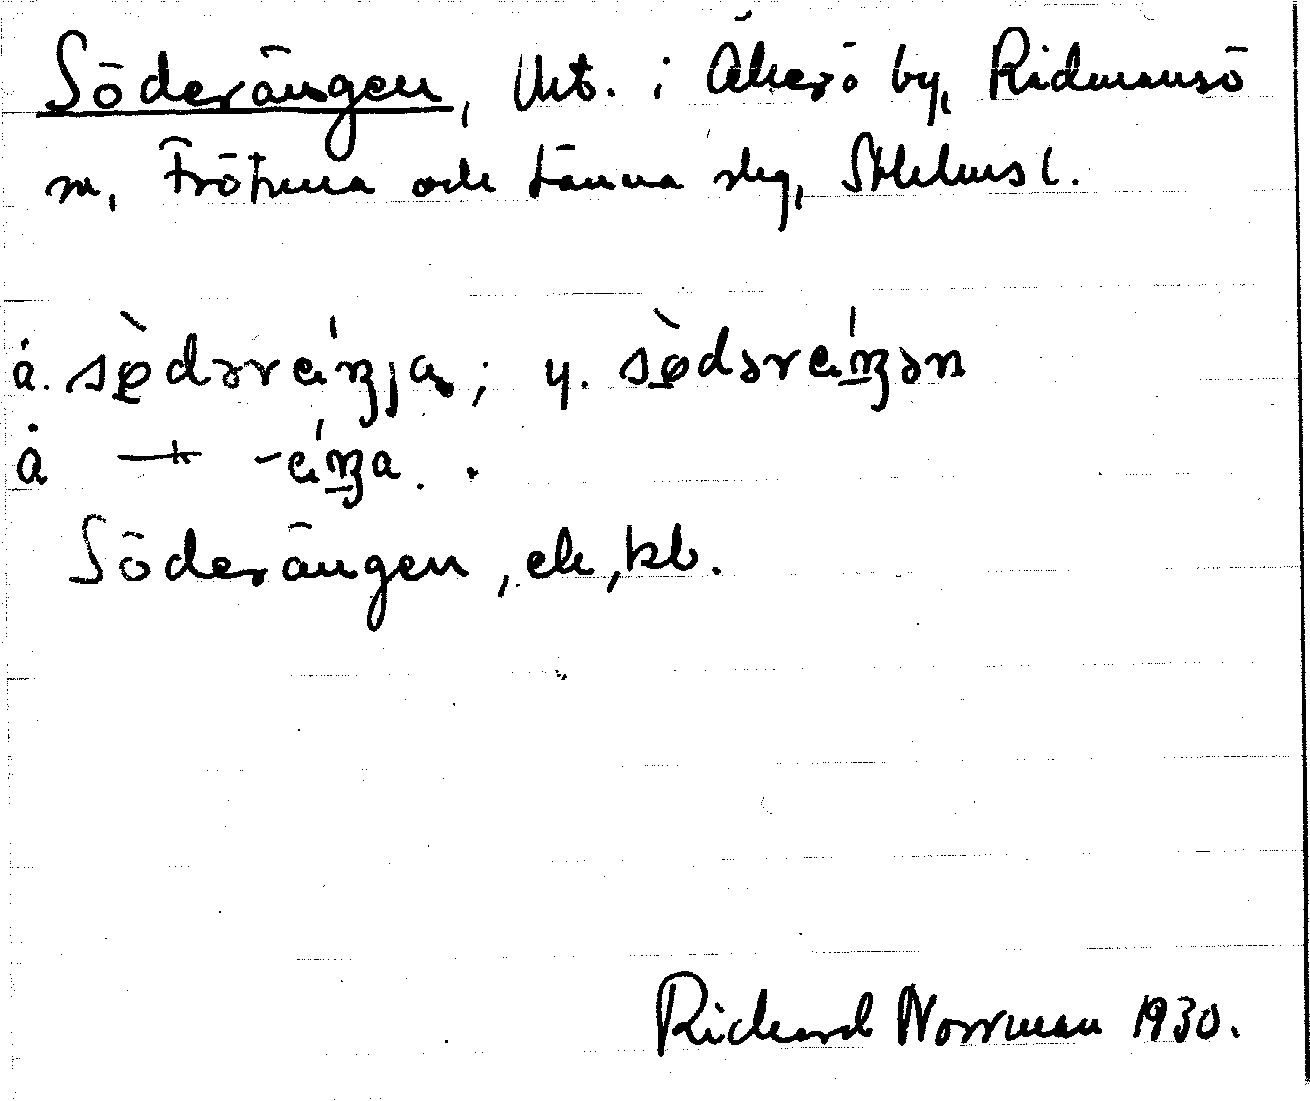 Söderängen, Utt. i Åkerö by, Rådmansö
sn, Frötuna och Länna skg, Sthlms l.
a. sø̀dəréŋja; y. sø̀dəréŋən
å —+— -éŋa.
Söderängen, ek, kb.
Richard Norrman 1930.